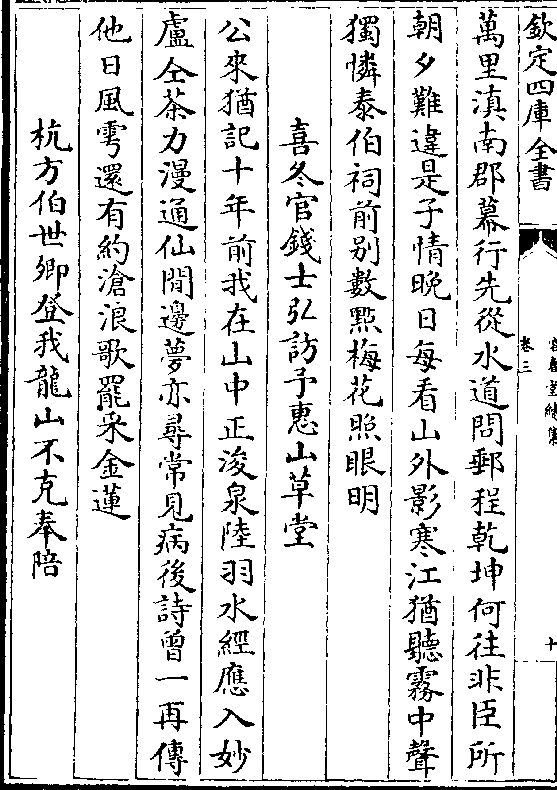 欽定四庫全書
卷三
十
萬里滇南郡幕行先從水道問郵程乾坤何往非臣所
朝夕難違是子情晚日每看山外影寒江猶聽霧中聲
獨憐泰伯祠前别數㸃梅花照眼明
喜冬官錢士弘訪予惠山草堂
公來猶記十年前我在山中正浚泉陸羽水經應入妙
盧仝茶力漫通仙閒邊夢亦尋常見病後詩曾一再傳
他日風雩還有約滄浪歌罷采金蓮
杭方伯世卿登我龍山不克奉陪